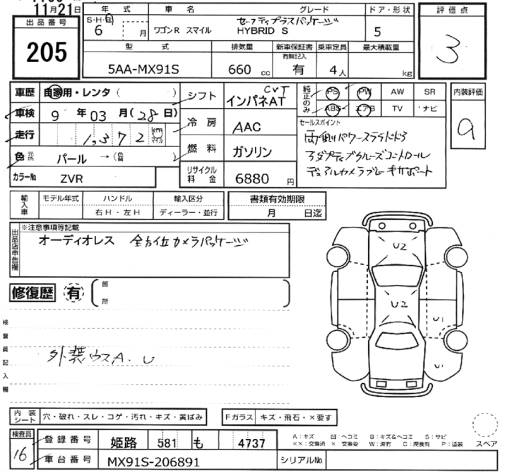 11月21日
出品番号
205
S・H・R
年式
6 月
車名
ワゴンR スマイル
グレード
セーフティプラスパッケージ
HYBRID S
ドア・形状
5
評価点
3
型式
5AA-MX91S
排気量
660 cc
新車保証書
有無記入
有
乗車定員
4人
最大積載量
kg
車歴 自家用・レンタ ( )
車検 9 年 03 月 ( 28 日 )
走行 1,372 km
色 パール → ( )
カラーNo ZVR
シフト CVT
インパネAT
冷房 AAC
燃料 ガソリン
リサイクル料金 6880 円
純正のみ
PS PW AW SR
ABS エアB TV ナビ
セールスポイント
両側パワースライドドア
アダプティブクルーズコントロール
デュアルカメラブレーキサポート
内装評価
輸入車
モデル年式 ハンドル 輸入区分
右H・左H ディーラー・並行
書類有効期限
月 日迄
出品店申告欄
※注意事項等記載
オーディオレス 全方位カメラパッケージ
修復歴 有
検査員記入欄
外装ウスA、U
U2
U2
U1
U1
内装シート 穴・破れ・スレ・コゲ・汚れ・キズ・黄ばみ
Fガラス キズ・飛石・×要す
検査員
16
登録番号 姫路 581 も 4737
車台番号 MX91S-206891
シリアルNo
A:キズ U:ヘコミ B:キズ&ヘコミ S:サビ
スペア